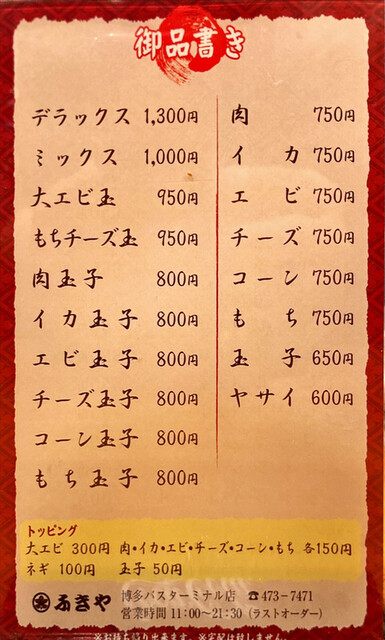 御品書き
デラックス 1,300円
ミックス 1,000円
大エビ玉 950円
もちチーズ玉 950円
肉玉子 800円
イカ玉子 800円
エビ玉子 800円
チーズ玉子 800円
コーン玉子 800円
もち玉子 800円
肉 750円
イカ 750円
エビ 750円
チーズ 750円
コーン 750円
もち 750円
玉子 650円
ヤサイ 600円
トッピング
大エビ 300円 肉・イカ・エビ・チーズ・コーン・もち 各150円
ネギ 100円 玉子 50円
ふきや 博多バスターミナル店 ☎473-7471
営業時間 11:00〜21:30（ラストオーダー）
※お持ち帰り出来ます。※宅配は致しません。